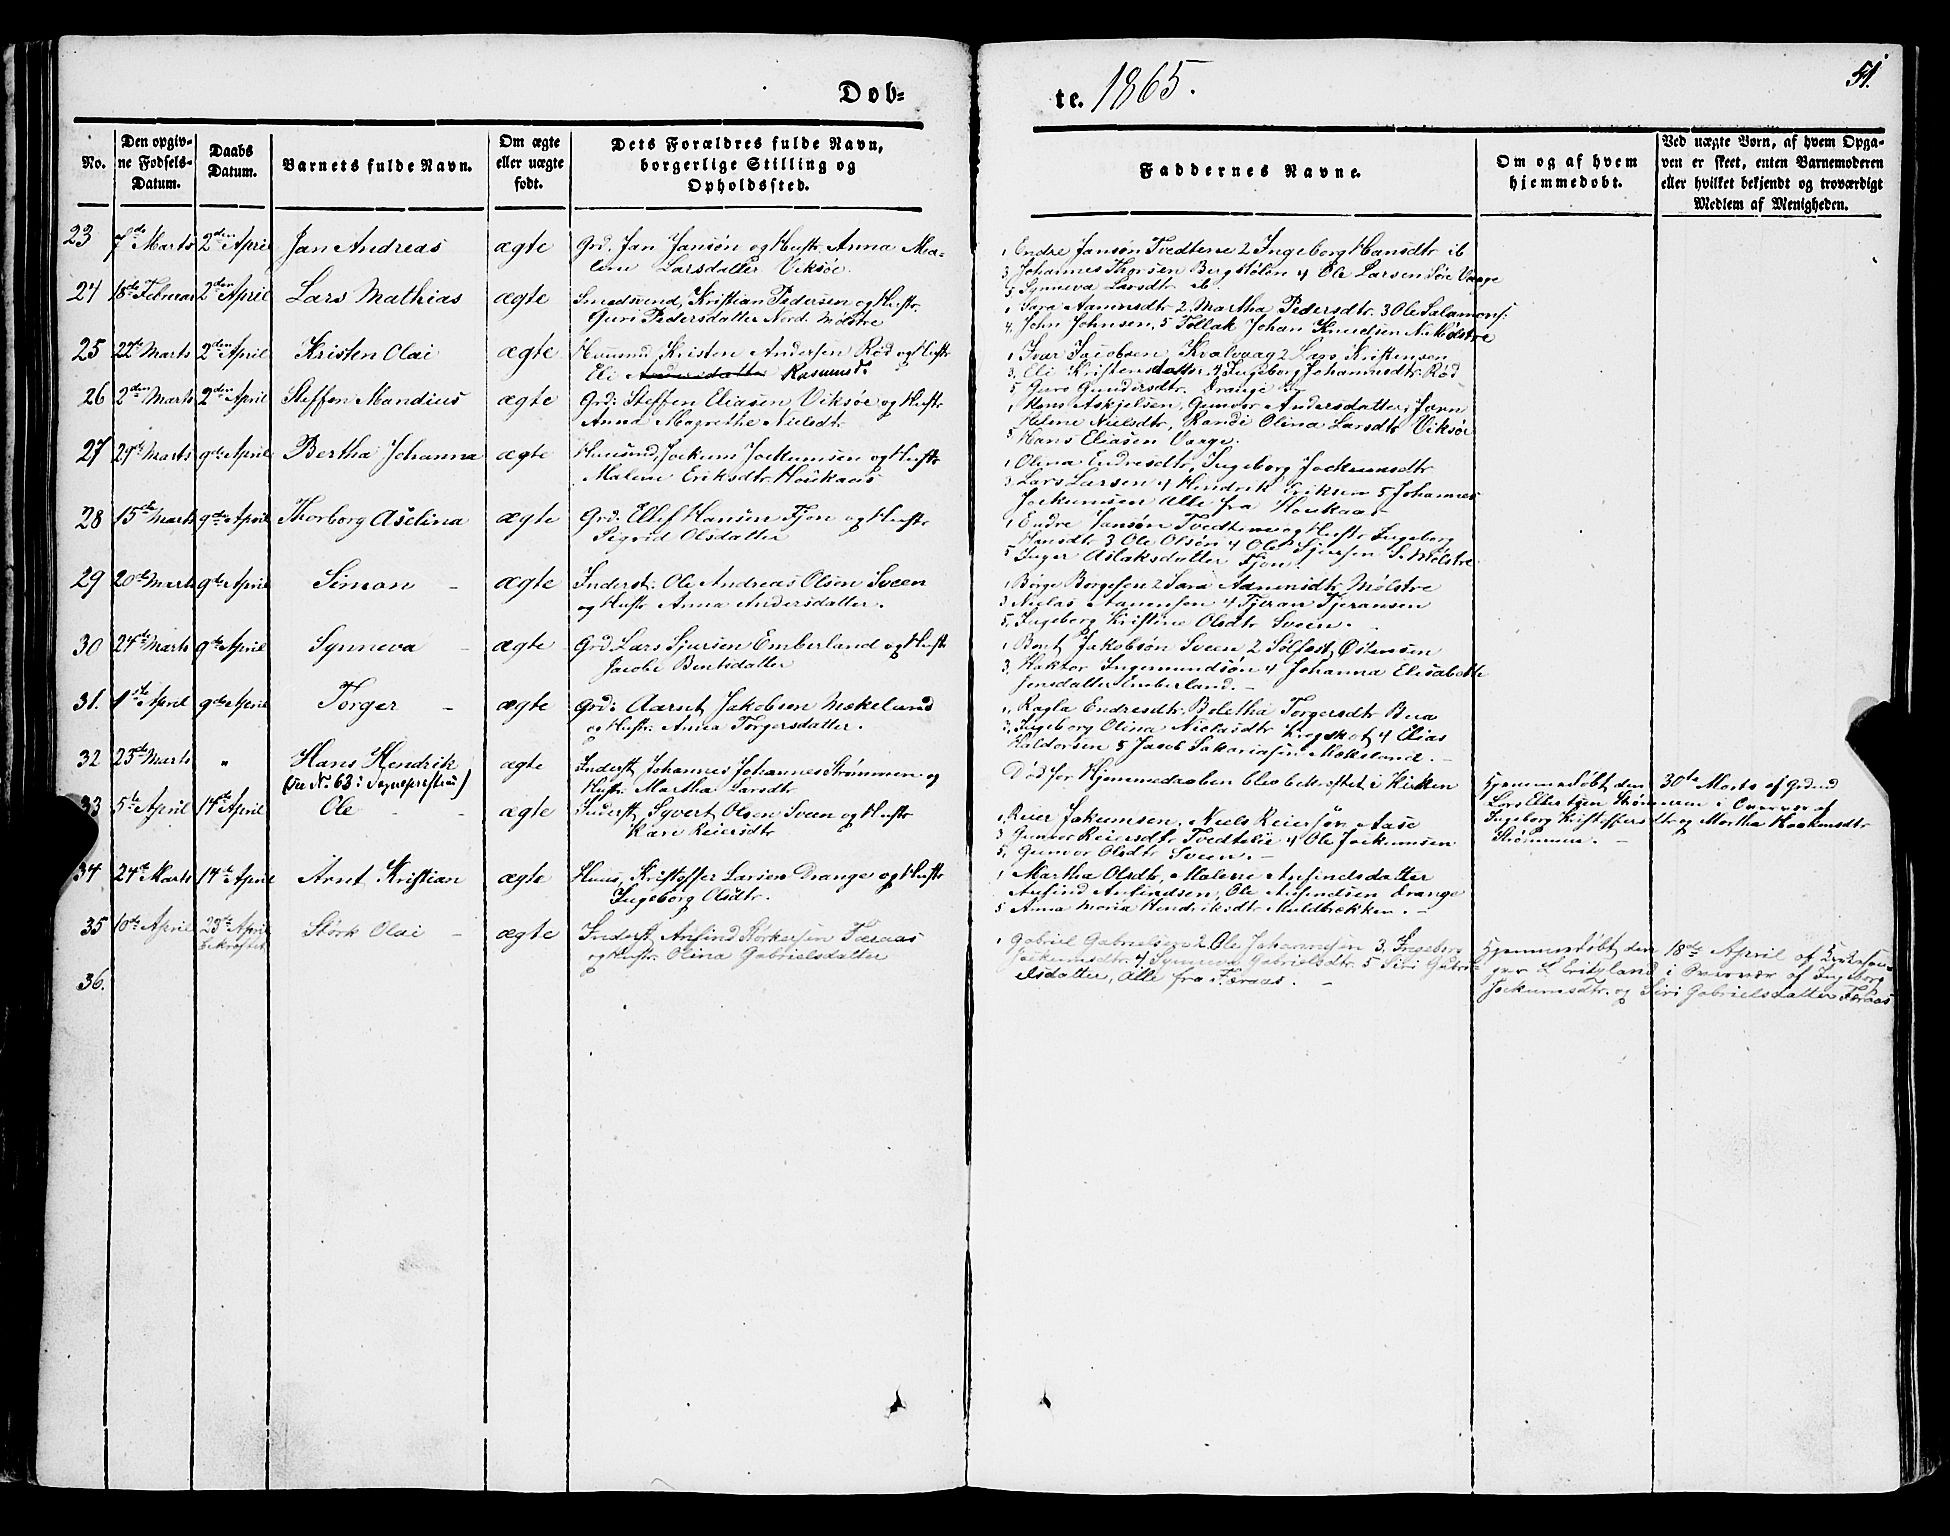 Døb=
te. 1865.
51.
No.
Den opgiv-
ne Fødsels-
Datum.
Daabs
Datum.
Barnets fulde Navn.
Om ægte
eller uægte
født.
Dets Forældres fulde Navn,
borgerlige Stilling og
Opholdssted.
Faddernes Navne.
Om og af hvem
hjemmedøbt.
Ved uægte Børn, af hvem Opga-
ven er skeet, enten Barnemoderen
eller hvilket bekjendt og troværdigt
Medlem af Menigheden.
23 7de Marts 2den April Jan Andreas ægte Grd. Jan Jansøn og Hustr. Anna Ma-
lene Larsdatter Viksøe.
1, Endre Jansøn Tvedtene 2 Ingeborg Hansdtr ib
3, Johannes Thorsen Bergstølen 4 Ole Larsen Søe Vaage
5 Synneva Larsdtr ib.
24 18de Februar 2den April Lars Mathias ægte Smedsvend, Kristian Pedersen og Hustr.
Guri Pedersdatter Nord. Mølstre
1 Sara Aamundsdtr 2, Martha Pedersdtr. 3 Ole Salamons:
4, John Johnsen, 5 Tollak Johan Knudsen N. Mølstre
25 22de Marts 2den April Kristen Olai ægte Huusmd, Kristen Andersen Rød og Hustr
Eli Andersdatter Rasmusd.
1, Ivar Jacobsen, Kvalvaag 2 Lars Kristensen
3, Eli Kristensdatter, 4, Ingeborg Johannesdtr. Rød
5 Guro Gundersdtr. Drange
26 2den Marts 2den April Steffen Mandius ægte Grd: Steffen Eliasen Viksøe og Hustr
Anna Magrethe Nielsdtr
1, Hans Askjelsen, Gunvor Andersdatter,Førn
Helene Nielsdtr, Randi Olina Larsdtr Viksøe
5 Hans Eliasen Vaage.
27 29de Marts 9de April Bertha Johanna ægte Huusmd, Jockum Jockumsen og Hustr
Malene Eriksdtr. Houkaas
1, Olina Endresdtr, Ingeborg Jockumsdtr
3, Lars Larsen 4 Hendrik Eriksen 5 Johannes
Jockumsen Alle fra Houkaas
28 15de Marts 9de April Thorborg Aselina ægte Grd. Ellef Hansen Fjon og Hustr
Sigrid Olsdatter
1, Endre Jansøn Tvedtene og Hustr Ingeborg
Hansdtr 3 Ole Olsøn 4 Ole Sjursen S. Mølstre
5 Inger Aslaksdatter Fjon
29 20de Marts 9de April Simon - ægte Inderst: Ole Andreas Olsen Sveen
og Hustr Anna Andersdatter.
1, Børge Børgesen 2 Sara Aamundsdtr Mølstre
3 Niclas Aanensen 4 Tjeran Tjeransen
5, Ingeborg Kristine Olsdtr Sveen.
30 24de Marts 9de April Synneva - ægte Grd. Lars Sjursen Emberland og Hustr
Jacobe Bentsdatter
1, Bent Jakobsøn Sveen 2 Sølfest Østensen
3, Haktor Ingemundsøn 4 Johanna Elisabethe
Jensdatter Emberland. -
31. 1ste April 9de April Torger - ægte Grd: Aarnt Jakobsen Mækeland
og Hustr. Anna Torgersdatter.
1, Ragla Endresdtr, Boletha Torgersdtr Bua
3, Ingeborg Olina Niclasdtr 4 Elias
Haldorsen 5 Jacob Sakariasen Mækeland. -
32 23de Marts " Hans Hendrik ægte Inderst Johannes Johannes Strømmen og
(see No 63 i)
Hustr: Martha Larsdtr
Død før Hjemmedaaben blev bekræftet i Kirken
Hjemmedøbt den 30te Marts af Grdmd
Lars Strømmen i Overvær af
Ingeborg Kristoffersdtr og Martha Haakensdtr
Strømmen. -
33 5te April 14de April Ole - - ægte Inderst, Syvert Olsen Sveen og Hustr
Kari Reiersdtr
1, Reier Jokumsen, Niels Reiersøn Aase
3 Gunvor Reiersdtr Tvedtelie 4 Ole Jockumsen
5, Gunvor Olsdtr Sveen. -
34 24de Marts 14de April Arnt Kristian ægte Huus, Kristoffer Larsen Drange og Hustr
Ingeborg Olsdtr.
1 Martha Olsdtr, Malene Anfindsdatter
Anfind Anfindsen, Ole Anfindsen Drange
5 Anna Maria Hendriksdtr Muldbrekken. -
35 10de April 23de April Størk Olai - ægte Inderst Anfind Størkersen Færaas
bekræftet og Hustr. Olina Gabrielsdatter
1 Gabriel Gabrielsen 2, Ole Johannesen 3. Ingeborg
Jockumsdtr. 4, Synneva Gabrielsdtr. 5 Siri Gabri-
elsdatter, Alle fra Færaas. -
Hjemmedøbt den 18de April af Kirkesan-
ger L. Erikland i Overvær af Ingeborg
Jockumsdtr. og Siri Gabrielsdatter Færaas
36.